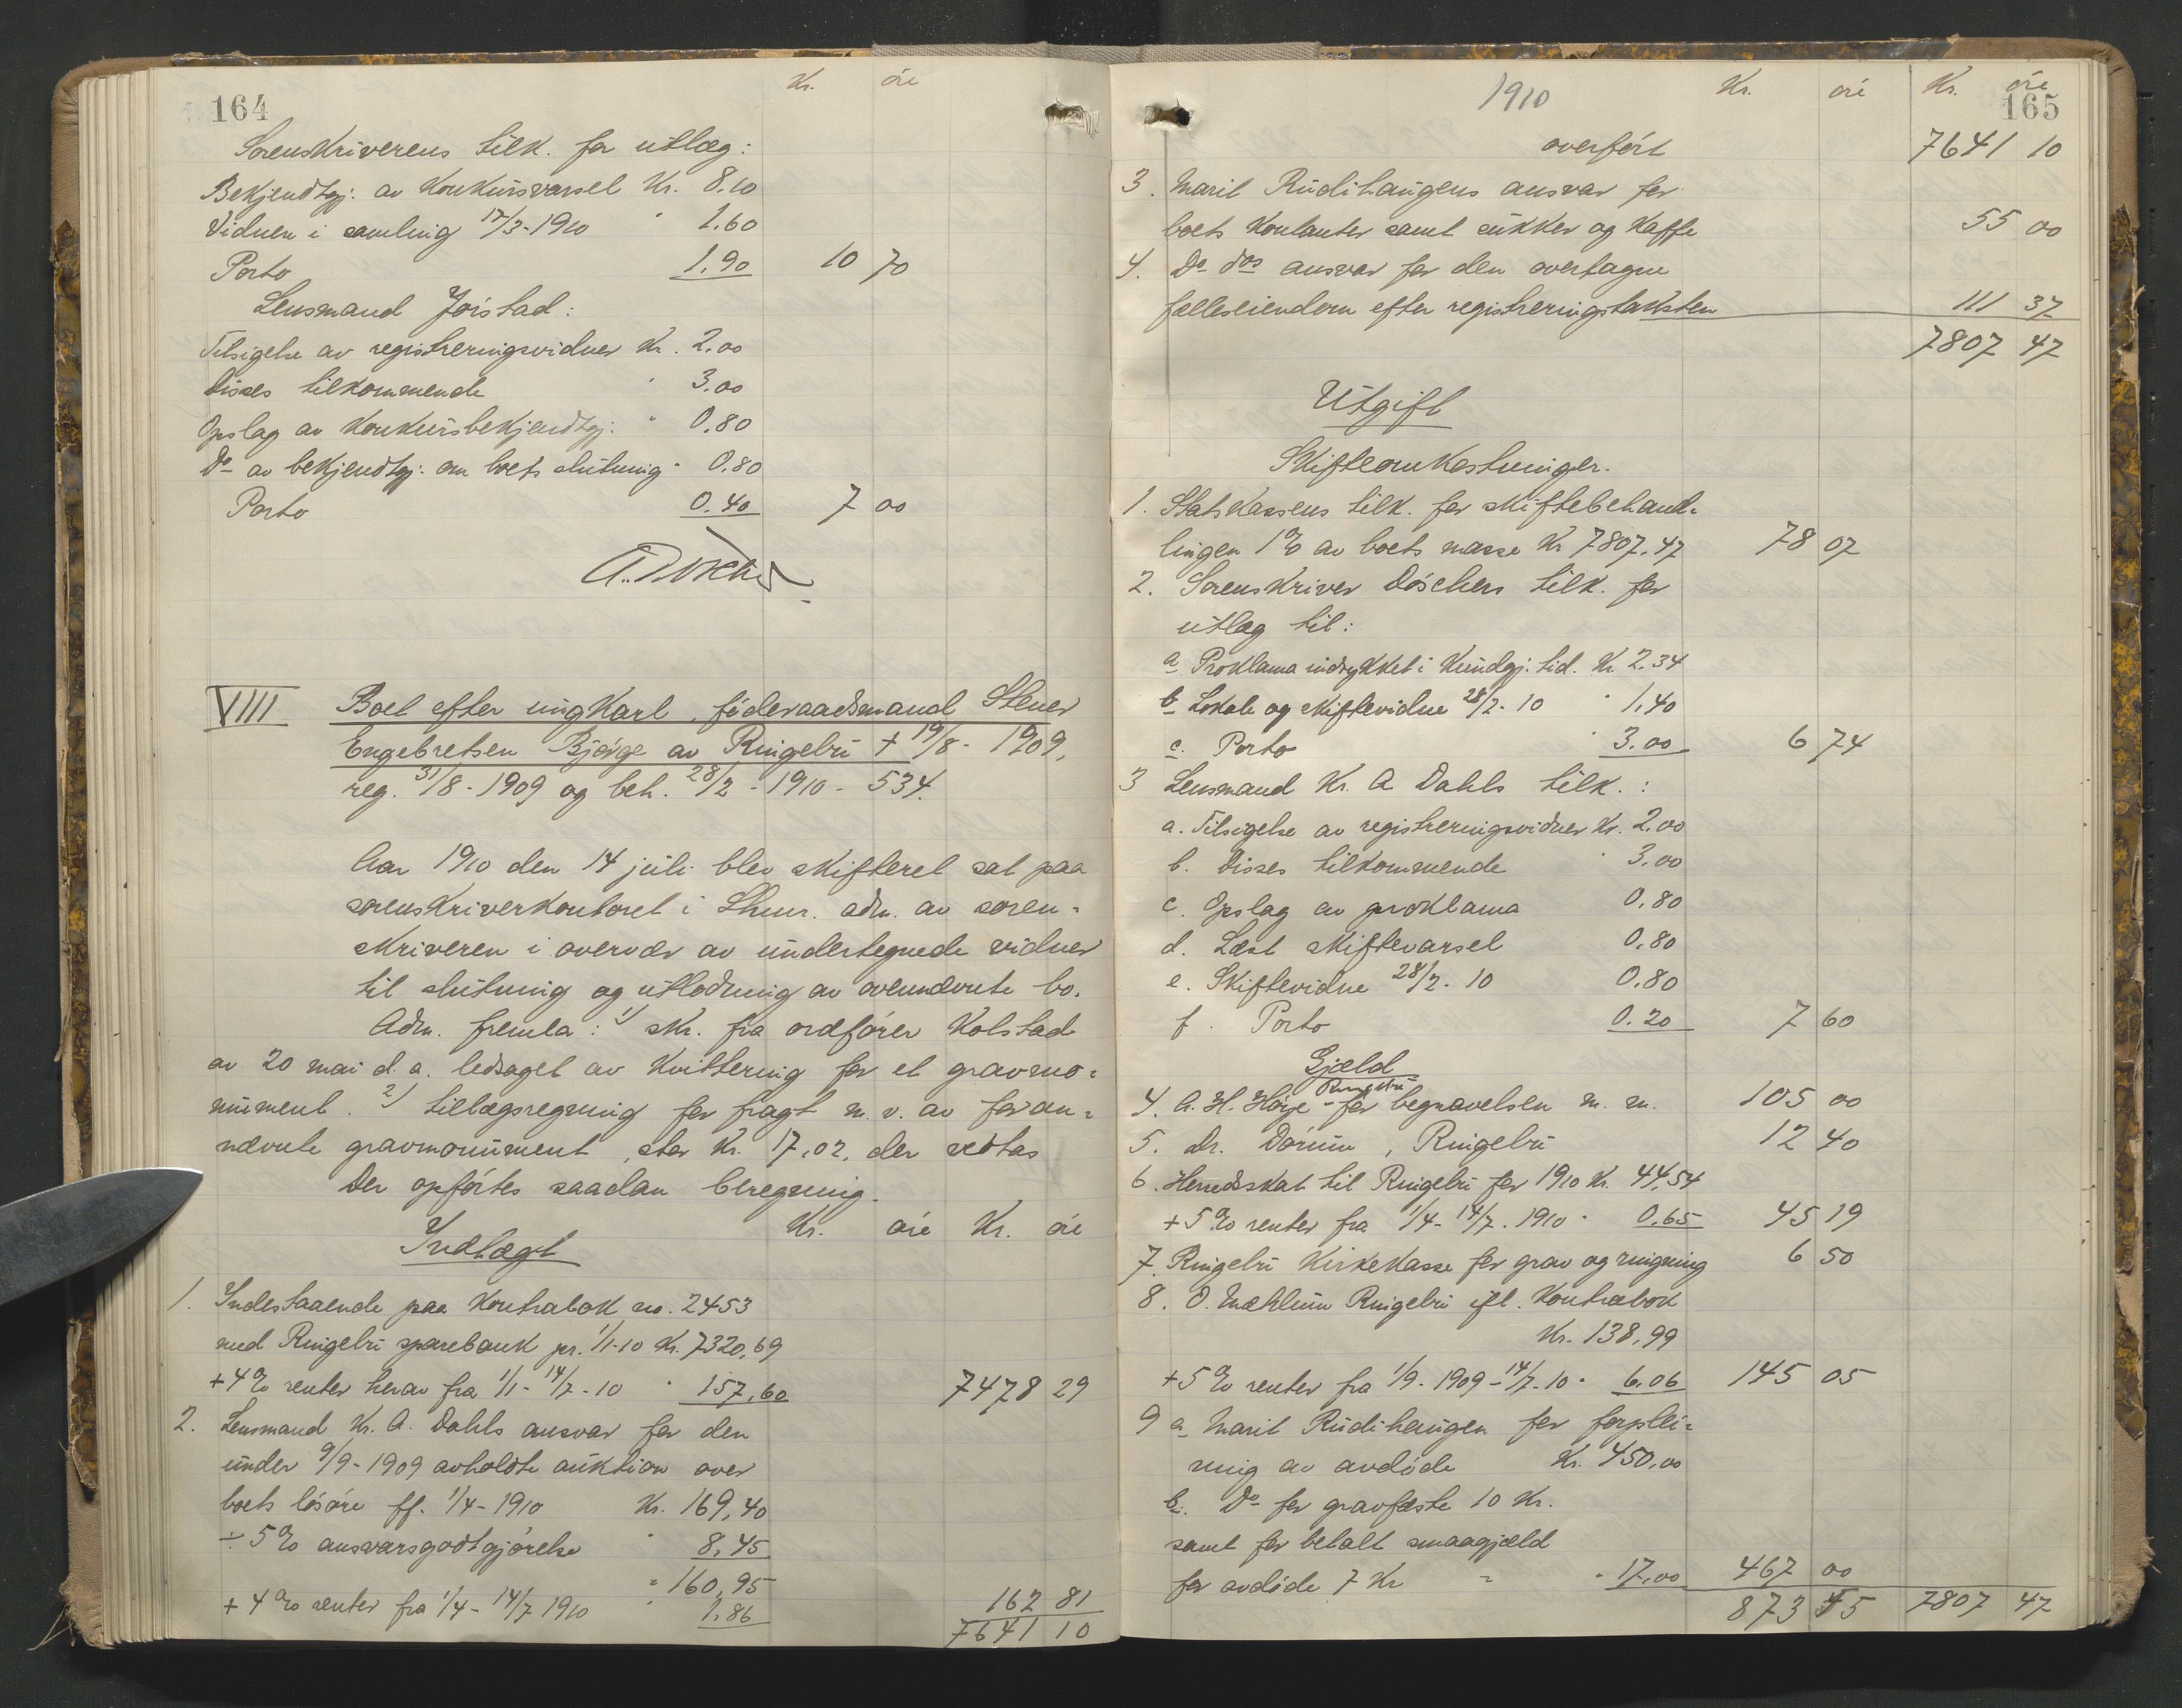 164
Kr. øre
Sorenskriverens tilk. for utlæg:
Bekjendtgj: av konkursvarsel Kr. 8.10
Vidnen i samling 17/3-1910 " 1.60
Porto 1.90 10 70
Lensmand Jorstad:
Tilsigelse av registreringsvidner Kr. 2.00
Disses tilkommende " 3.00
Opslag av konkursbekjendtgj: " 0.80
Do av bekjendtgj: om boets slutning " 0.80
Porto 0.40 7 00
VIII Boet efter ungkarl, föderaadsmand Stener
Engebretsen Bjørge av Ringebu + 19/8 - 1909,
reg. 31/8 - 1909 og beh. 28/2 - 1910 - 534.
Aar 1910 den 14 juli blev skifteret sat paa
sorenskriverkontoret i Lhmr. adm. av soren-
skriveren i overvær av undertegnede vidner
til slutning og utlodning av ovennævnte bo.
Adm. fremla: 1) skr. fra ordfører Kolstad
av 20 mai d. a. ledsaget av kvittering for et gravmo-
nument. 2) tillægsregning for fragt m. v. av foran-
nævnte gravmonument, stor Kr. 17,02, der vedtas
Der opførtes saadan beregning.
Kr. øre Kr. øre
Indtægt
1. Indestaaende paa kontrabok no. 2453
med Ringebu sparebank pr. 1/1-10 Kr. 7320,69
+ 4% renter herav fra 1/1 - 14/7 - 10 " 157,60 7478 29
2. Lensmand Kr. A. Dahls ansvar for den
under 9/9 - 1909 avholdte auktion over
boets løsøre ff. 1/4 - 1910 Kr. 169,40
÷ 5% ansvarsgodtgjørelse " 8.45
" 160,95
+ 4% renter fra 1/4 - 14/7 1910 " 1.86 162 81
7641 10
165
1910
Kr. øre Kr. øre
overført 7641 10
3. Marit Rudihaugens ansvar for
boets kontanter samt sukker og kaffe 55 00
4. Do dos ansvar for den overtagne
fælleseiendom efter registreringstaksten 111 37
7807 47
Utgift
Skifteomkostninger.
1. Statskassens tilk. for skiftebehand-
lingen 1% av boets masse Kr 7807,47 78 07
2. Sorenskriver Döschers tilk. for
utlæg til:
a Proklama indrykket i Kundgj. tid. Kr 2.34
b Lokale og skiftevidne 28/2 - 10 " 1,40
c. Porto " 3.00 6 74
3 Lensmand Kr. A Dahls tilk.:
a. Tilsigelse av registreringsvidner Kr. 2.00
b. Disses tilkommende " 3.00
c. Opslag av proklama 0.80
d. Læst skiftevarsel 0.80
e. Skiftevidne 28/2 - 10 0.80
f. Porto 0.20 7 60
Gjæld
Ringebu
4. A. H. Høye - for begravelsen m. m. 105 00
5. dr. Dørum, Ringebu 12 40
6. Herredsskat til Ringebu for 1910 Kr. 44,54
+ 5% renter fra 1/4 - 14/7. 1910 " 0.65 45 19
7. Ringebu kirkekasse for grav og ringning 6 50
8. O. Mæhlum Ringebu ifl. kontrabok
Kr. 138,99
+ 5% renter fra 1/9 - 1909 - 14/7 - 10 " 6.06 145 05
9 a Marit Rudihaugen for forplei-
ning av avdøde Kr. 450,00
b. Do for gravfæste 10 Kr.
samt for betalt smaagjæld
for avdøde 7 Kr = " 17,00 467 00
873 45 7807 47